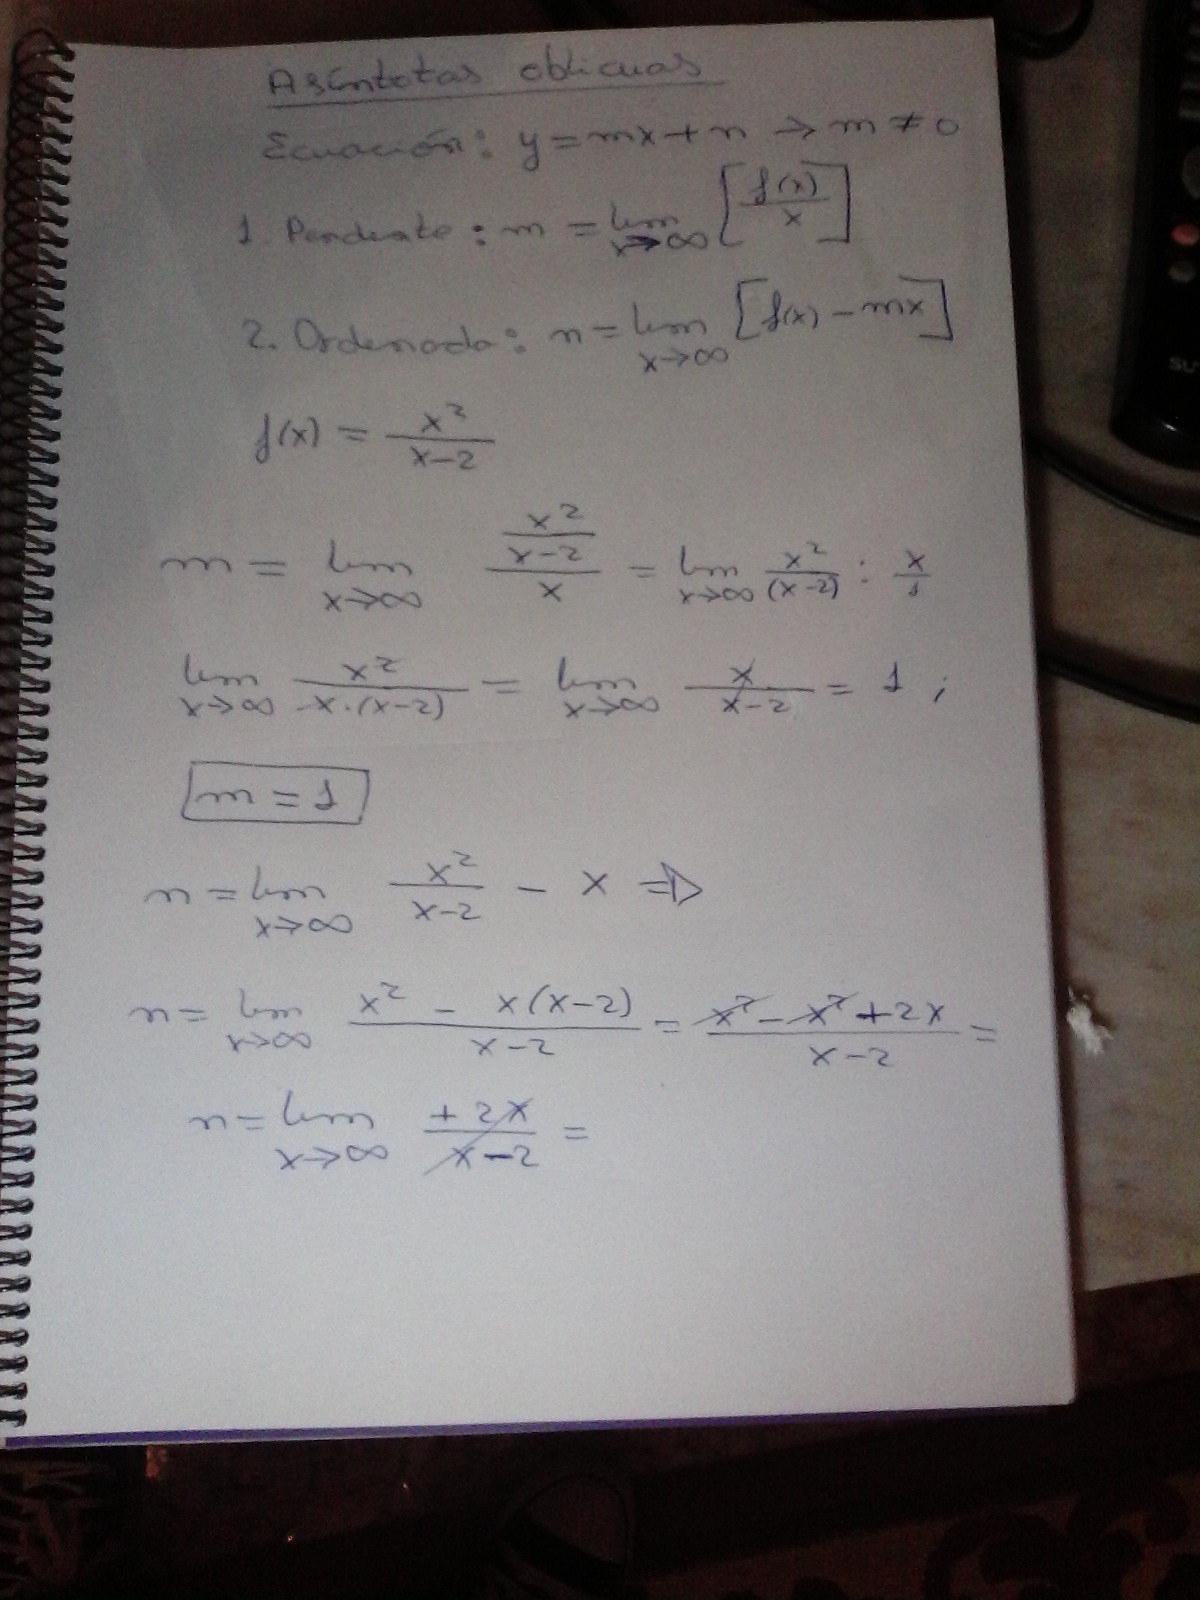 Asíntotas oblicuas
Ecuación: y = mx + n → m ≠ 0
1. Pendiente: m = lim x→∞ [f(x)/x]
2. Ordenada: n = lim x→∞ [f(x) − mx]
f(x) = x²/(x−2)
m = lim x→∞ (x²/(x−2))/x = lim x→∞ x²/(x−2) : x/1
lim x→∞ x²/(x·(x−2)) = lim x→∞ x/(x−2) = 1;
m = 1
n = lim x→∞ x²/(x−2) − x ⇒
n = lim x→∞ (x² − x(x−2))/(x−2) = (x² − x² + 2x)/(x−2) =
n = lim x→∞ +2x/(x−2) =
SU